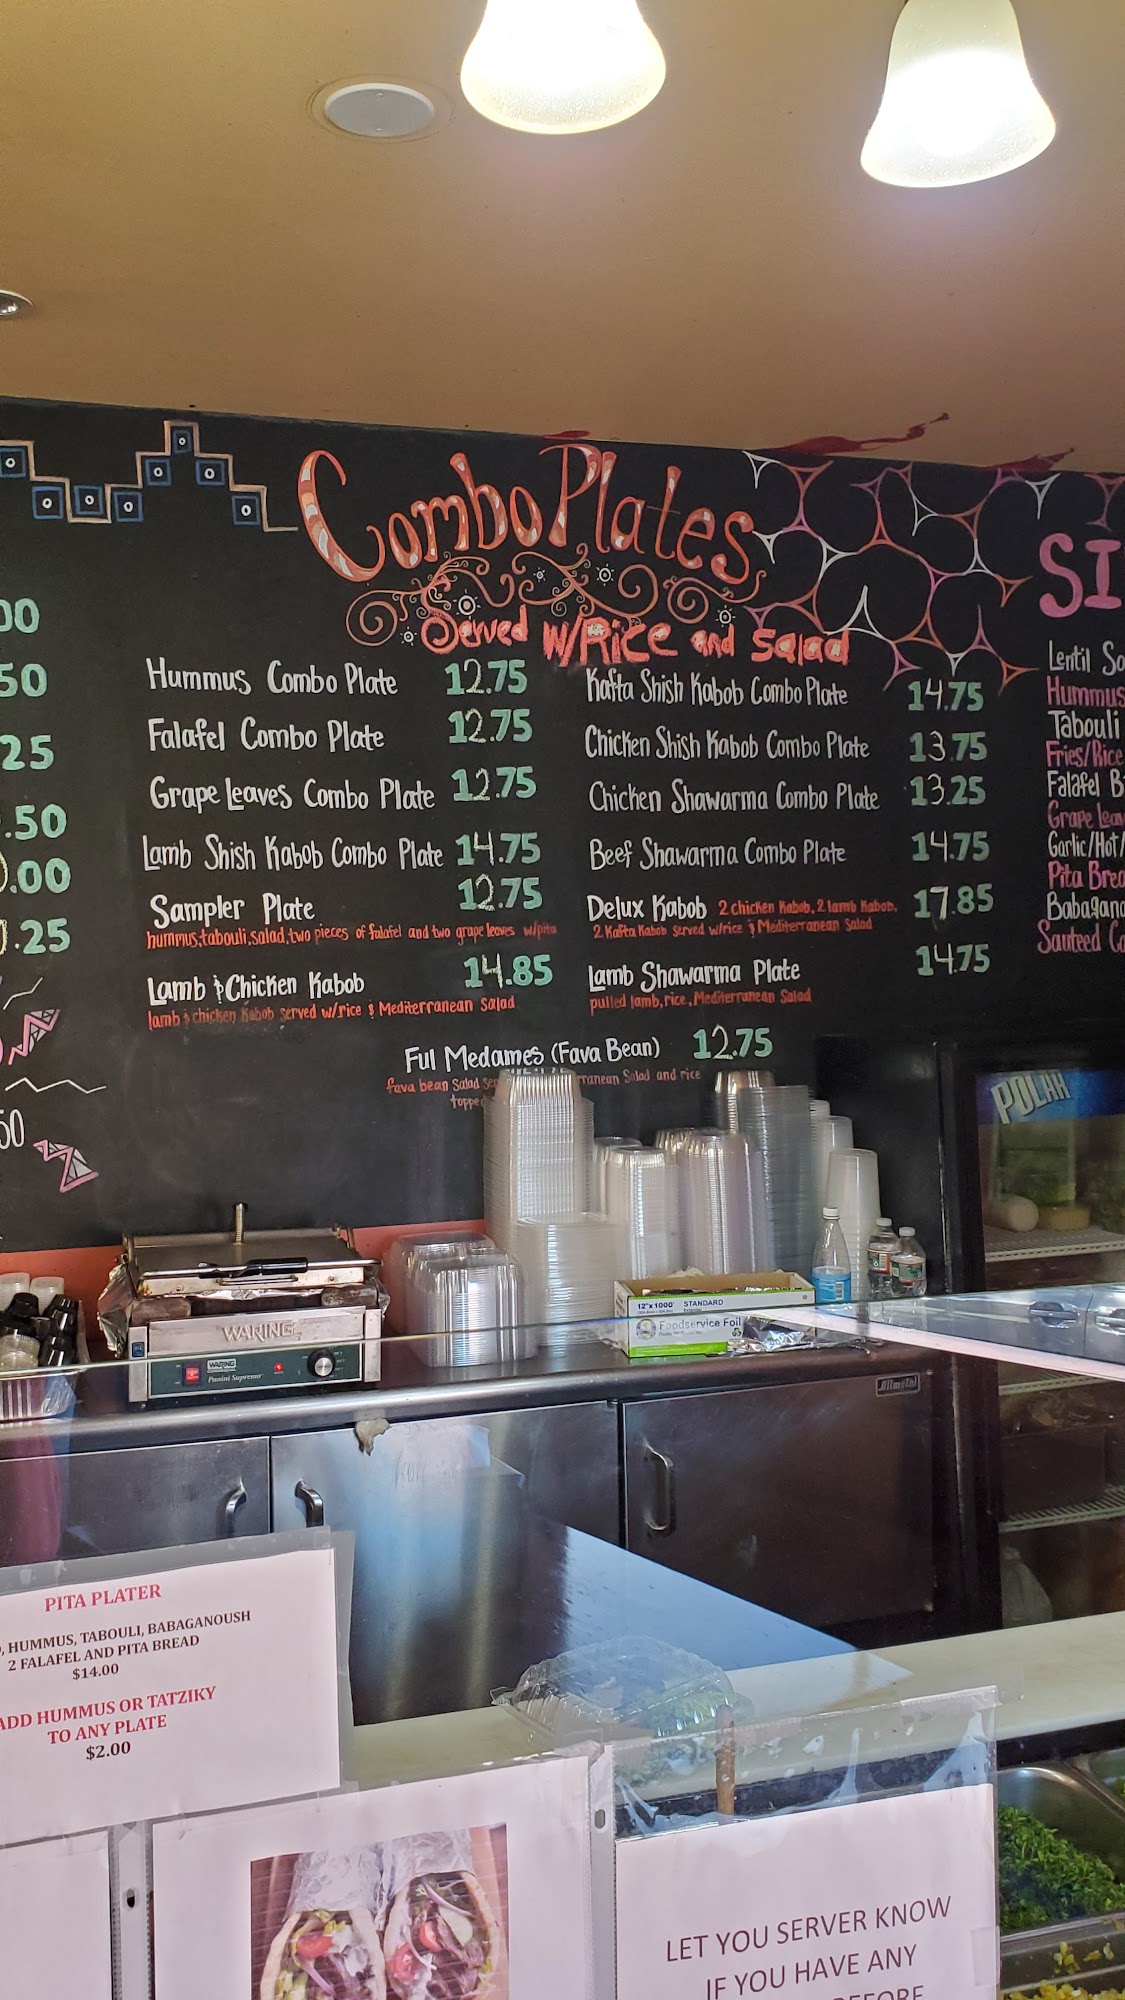 Combo Plates
Served W/RiCE and Salad
00
50
25
.50
.00
.25
50
Hummus Combo Plate 12.75
Falafel Combo Plate 12.75
Grape Leaves Combo Plate 12.75
Lamb Shish Kabob Combo Plate 14.75
Sampler Plate 12.75
hummus, tabouli, salad, two pieces of falafel and two grape leaves w/pita
Lamb & Chicken Kabob 14.85
lamb & chicken Kabob served w/rice & Mediterranean Salad
Kafta Shish Kabob Combo Plate 14.75
Chicken Shish Kabob Combo Plate 13.75
Chicken Shawarma Combo Plate 13.25
Beef Shawarma Combo Plate 14.75
Delux Kabob 2 chicken Kabob, 2 lamb Kabob, 17.85
2 Kafta Kabob served w/rice & Mediterranean Salad
Lamb Shawarma Plate 14.75
pulled lamb, rice, Mediterranean Salad
Ful Medames (Fava Bean) 12.75
fava bean Salad ser rranean Salad and rice
topped
SI
Lentil So
Hummus
Tabouli
Fries/Rice
Falafel B
Grape Leav
Garlic/Hot/
Pita Brea
Babagano
Sauteed Ca
POLAR
WARING
WARING
Panini Supremo
12"x1000' STANDARD
Foodservice Foil
Allmetal
PITA PLATER
, HUMMUS, TABOULI, BABAGANOUSH
2 FALAFEL AND PITA BREAD
$14.00
ADD HUMMUS OR TATZIKY
TO ANY PLATE
$2.00
LET YOU SERVER KNOW
IF YOU HAVE ANY
BEFORE